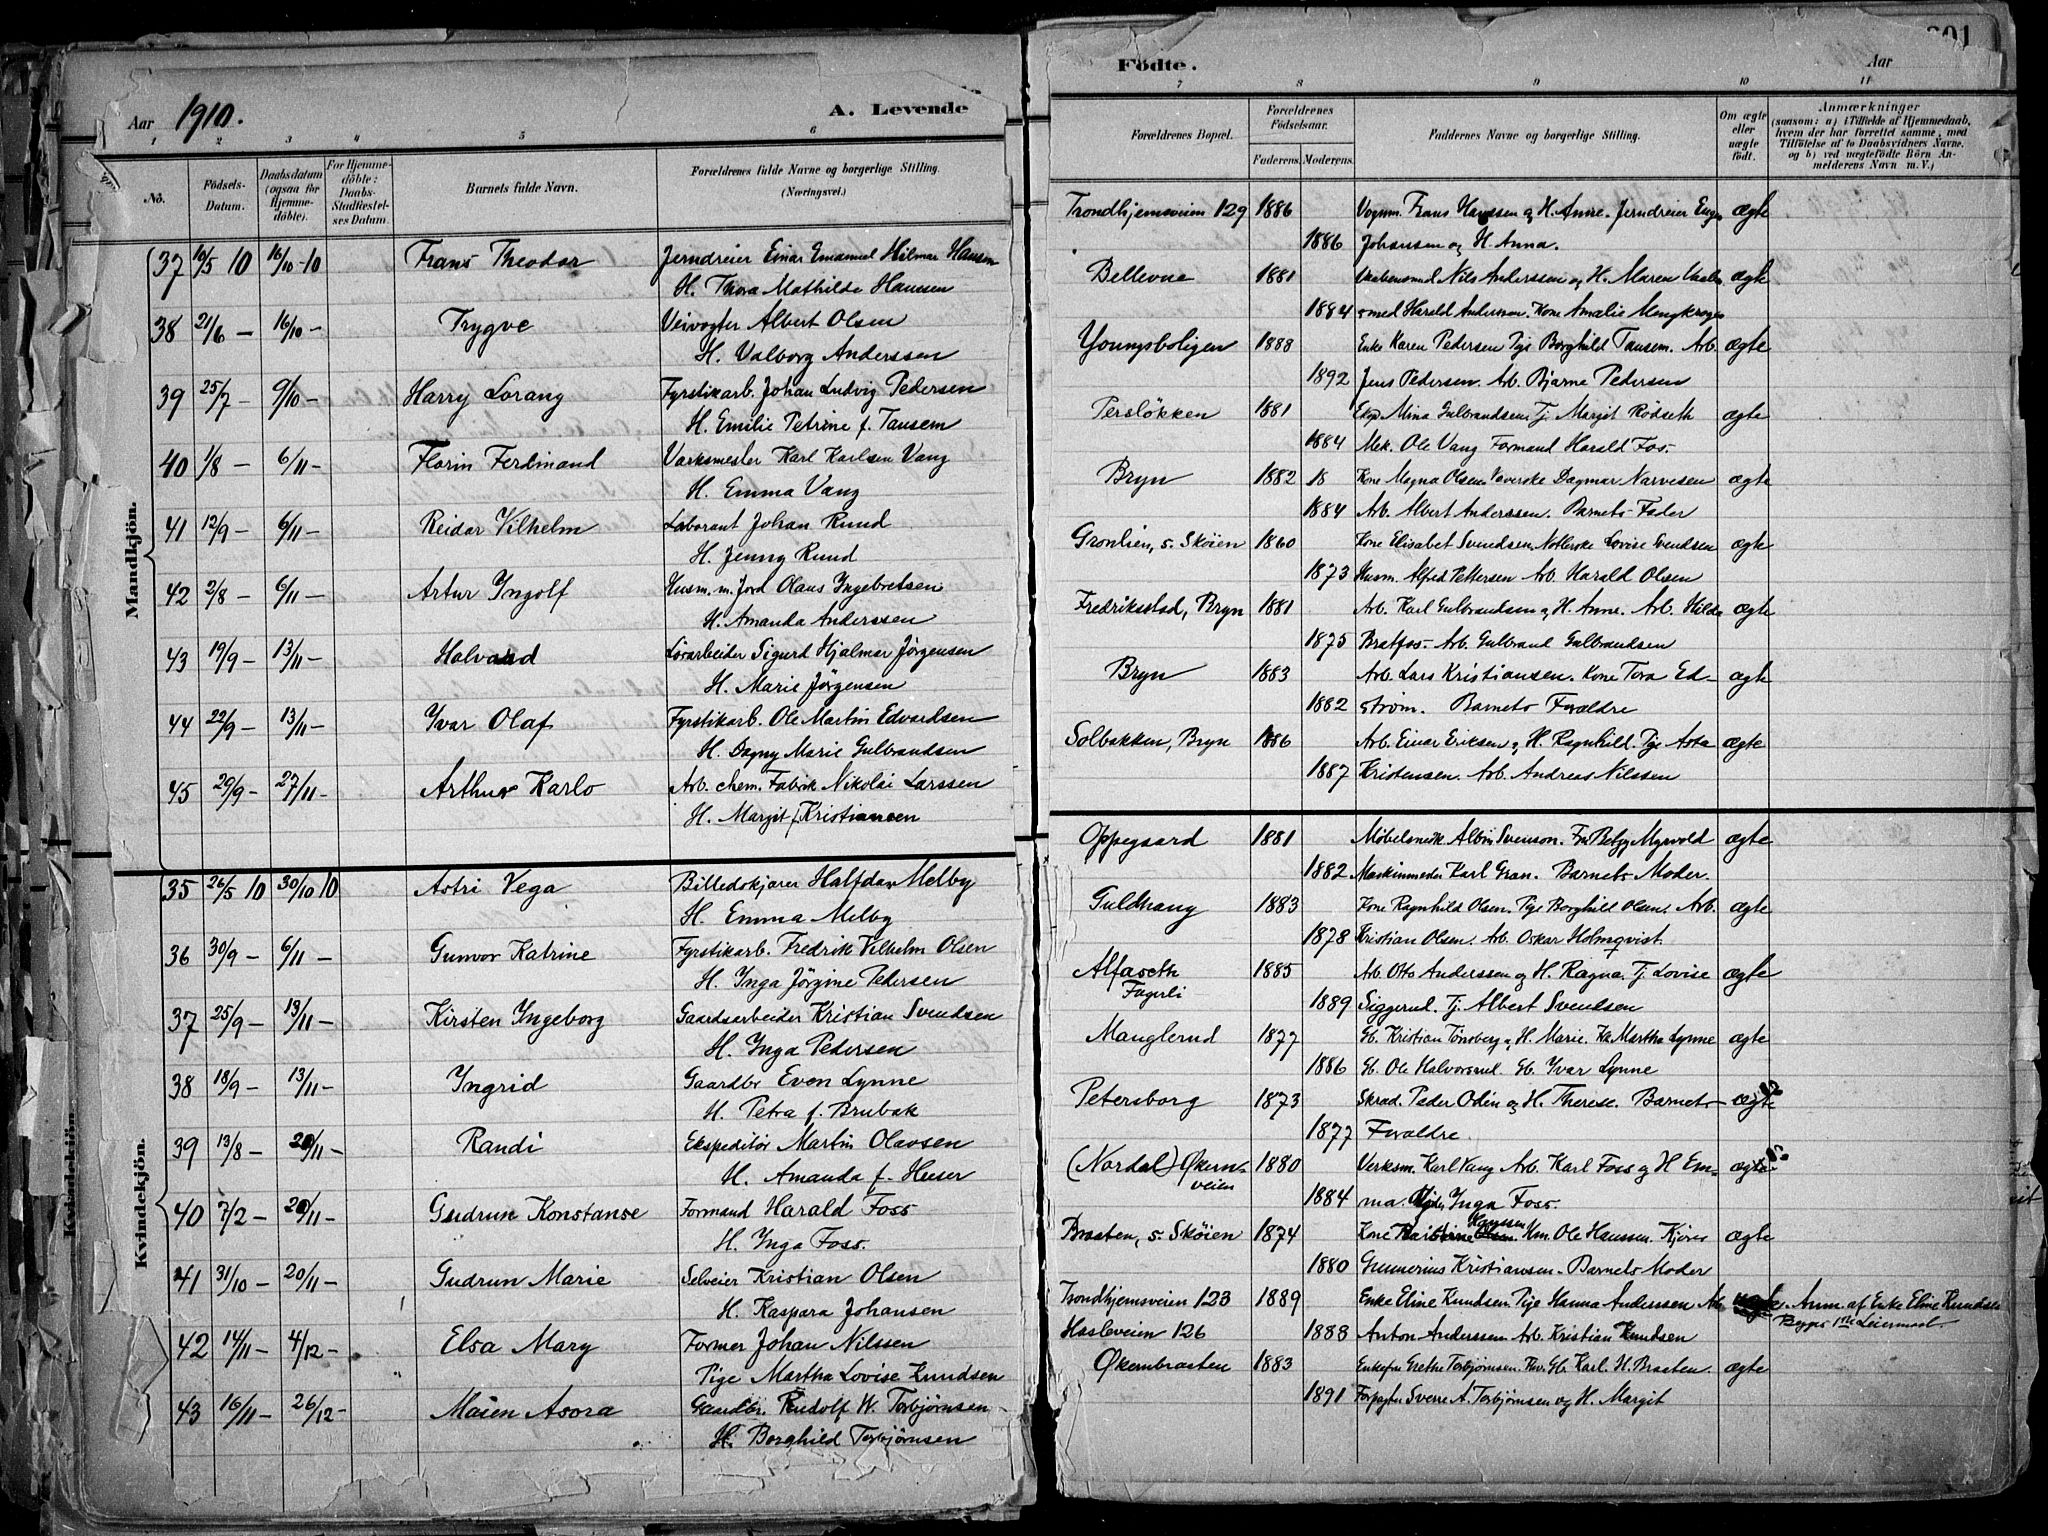 Aar 1910. A. Levende
1 2 3 4 5 6
No. Födsels-Datum. Daabsdatum (ogsaa for Hjemmedöbte). For Hjemmedöbte: Daabs-Stadfæstelses Datum. Barnets fulde Navn. Forældrenes fulde Navne og borgerlige Stilling. (Næringsvei.)
Mandkjön.
37 19/5 10 16/10-10 Frans Theodor Jerndreier Einar Emanuel Hilmar Hansen
H. Thora Mathilde Hansen
38 21/6 – 16/10 – Trygve Veivogter Albert Olsen
H. Valborg Anderssen
39 25/7 – 9/10 – Harry Lorang Fyrstikarb. Johan Ludvig Pedersen
H. Emilie Petrine f. Tansem
40 1/8 – 6/11 – Florin Ferdinand Værksmester Karl Karlsen Vang
H. Emma Vang
41 12/9 – 6/11 – Reidar Vilhelm Laborant Johan Rund
H. Jenny Rund
42 2/8 – 6/11 – Artur Ingolf Husm. m. Jord Olaus Ingebretsen
H. Amanda Anderssen
43 19/9 – 13/11 – Halvard Lörarbeider Sigurd Hjalmar Jörgensen
H. Marie Jörgensen
44 22/9 – 13/11 – Yvar Olaf Fyrstikarb. Ole Martin Edvardsen
H. Dagny Marie Gulbrandsen
45 29/9 – 27/11 – Arthur Karlo Arb. chem. Fabrik Nikolai Larssen
H. Margit f. Kristiansen
Kvindekjön.
Kvindekjön.
35 26/5 10 30/10 10 Astri Vega Billedskjærer Halfdan Melby
H. Emma Melby
36 30/9 – 6/11 – Gunvor Katrine Fyrstikarb. Fredrik Vilhelm Olsen
H. Inga Jörgine Pedersen
37 25/9 – 13/11 – Kirsten Ingeborg Gaardsarbeider Kristian Svendsen
H. Inga Pedersen
38 18/9 – 13/11 – Ingrid Gaardbr Even Lynne
H. Petra f. Brubak
39 13/8 – 20/11 – Randi Ekspeditör Martin Olavsen
H. Amanda f. Huser
40 7/2 – 20/11 – Gudrun Konstanse Formand Harald Foss
H. Inga Foss.
41 31/10 – 20/11 – Gudrun Marie Selveier Kristian Olsen
H. Kaspara Johansen
42 14/11 – 4/12 – Elsa Mary Former Johan Nilssen
Pige Martha Lovise Knudsen
43 16/11 – 26/12 – Maien Asora Gaardbr. Rudolf W. Torbjørnsen
H. Borghild Torbjørnsen
Födte. Aar 301
7 8 9 10 11
Forældrenes Bopæl. Forældrenes Födselsaar. Faderens. Moderens. Faddernes Navne og borgerlige Stilling. Om ægte eller uægte födt. Anmærkninger (saasom: a) i Tilfælde af Hjemmedaab, hvem der har forrettet samme, med Tilföielse af to Daabsvidners Navne. og b) ved uægtefödte Börn Anmelderens Navn m. V.)
Trondhjemsveien 129 1886 Vognm. Frans Hanssen og H. Anne. Jerndreier Eugen ægte
1886 Johanssen og H. Anna.
Bellevue 1881 Vaabensmed Nils Anderssen og H. Maren Vaaben ægte
1884 smed Harald Anderssen. Kone Amalie Mengkroger
Youngsboligen 1888 Enke Karen Pedersen Pige Borghild Tansem. Arb. ægte
1892 Jens Pedersen. Arb. Bjarne Pedersen
Persløkken 1881 Eksp Mina Gulbrandsen Tj. Margit Rödseth ægte
1884 Mek. Ole Vang Formand Harald Fos.
Bryn 1882 18 Kone Magna Olsen Væverske Dagmar Narvesen ægte
1884 Arb. Albert Anderssen. Barnets Fader
Gronlien, s. Skøien 1860 Kone Elisabet Svendsen Lovise Svendsen ægte
1873 Husm. Alfred Pettersen Arb. Harald Olsen
Fredriksstad, Bryn 1881 Arb. Karl Gulbrandsen og H. Anne. Arb. Hilda ægte
1875 Bratfos. Arb. Gulbrand Gulbrandsen
Bryn 1883 Arb. Lars Kristiansen. Kone Tora Ed– ægte
1882 strøm. Barnets Forældre
Solbakken, Bryn 1886 Arb. Einar Eriksen og H. Ragnhild. Pige Asta ægte
1887 Kristensen. Arb. Andreas Nilssen
Oppegaard 1881 Møbelsnedk Albin Svenson. Frk Betzy Myrvold ægte
1882 Maskinmeder Karl Gran. Barnets Moder.
Guldhaug 1883 Kone Ragnhild Olsen. Pige Borghild Olsen. Arb. ægte
1878 Kristian Olsen. Arb. Oskar Holmqvist.
Alfaseth Fagerli 1885 Arb. Otto Anderssen og H. Ragna. Tj. Lovise ægte
1889 Siggerud. Tj. Albert Svendsen
Manglerud 1877 Gb. Kristian Tönsberg og H. Marie. Kone Martha Lynne ægte
1886 Gb. Ole Halvorsrud. Gb. Yvar Lynne
Petersborg 1873 Skræd. Peder Odin og H. Therese. Barnets ægte
1877 Forældre.
(Nordal) Økernveien 1880 Verksm. Karl Vang Arb. Karl Foss og H Em– ægte
1884 ma. Inga Foss.
Braaten, s. Skøien 1874 Kone Hanssen Hm. Ole Hanssen. Kjører ægte
1880 Gunnerius Kristiansen. Barnets Moder
Trondhjemsveien 123 1889 Enke Eline Knudsen. Pige Hanna Anderssen Arb Anm. af Enke Eline Knudsen
Begges 1ste Leiermaal.
Hasleveien 126 1888 Anton Anderssen Arb. Kristian Knudsen
Økernbraaten 1883 Enkefru Grethe Torbjørnsen. Gb. Karl. H. Braaten. ægte
1891 Forpagter Sverre A. Torbjørnsen og H. Margit